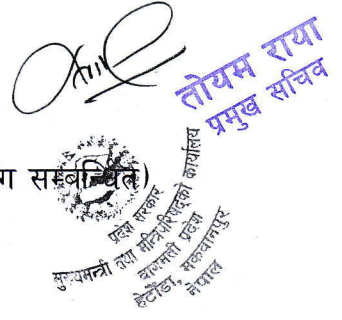 तोयम राया
प्रमुख सचिव
ग सम्बन्धित)
प्रदेश सरकार
मुख्यमन्त्री तथा मन्त्रिपरिषद्को कार्यालय
बागमती प्रदेश
हेटौंडा, मकवानपुर
नेपाल